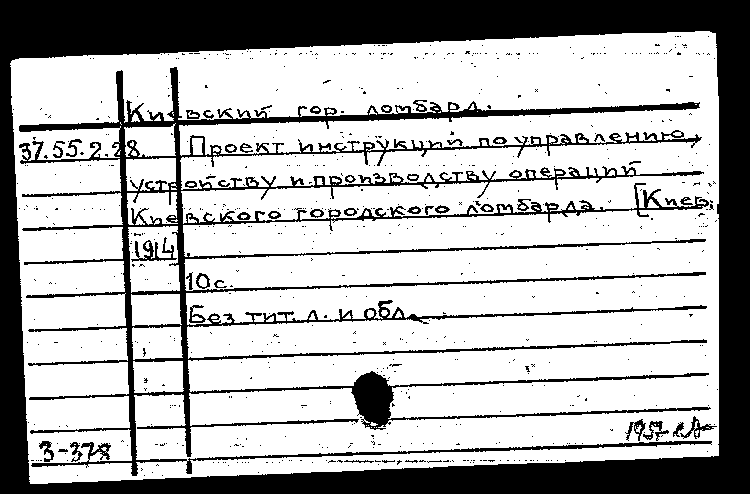 Киевский гор. ломбард.
37.55.2.28. Проект инструкций по управлению,
устройству и производству операций
Киевского городского ломбарда. [Киев,
1914].
10 с.
Без тит. л. и обл.
3-378